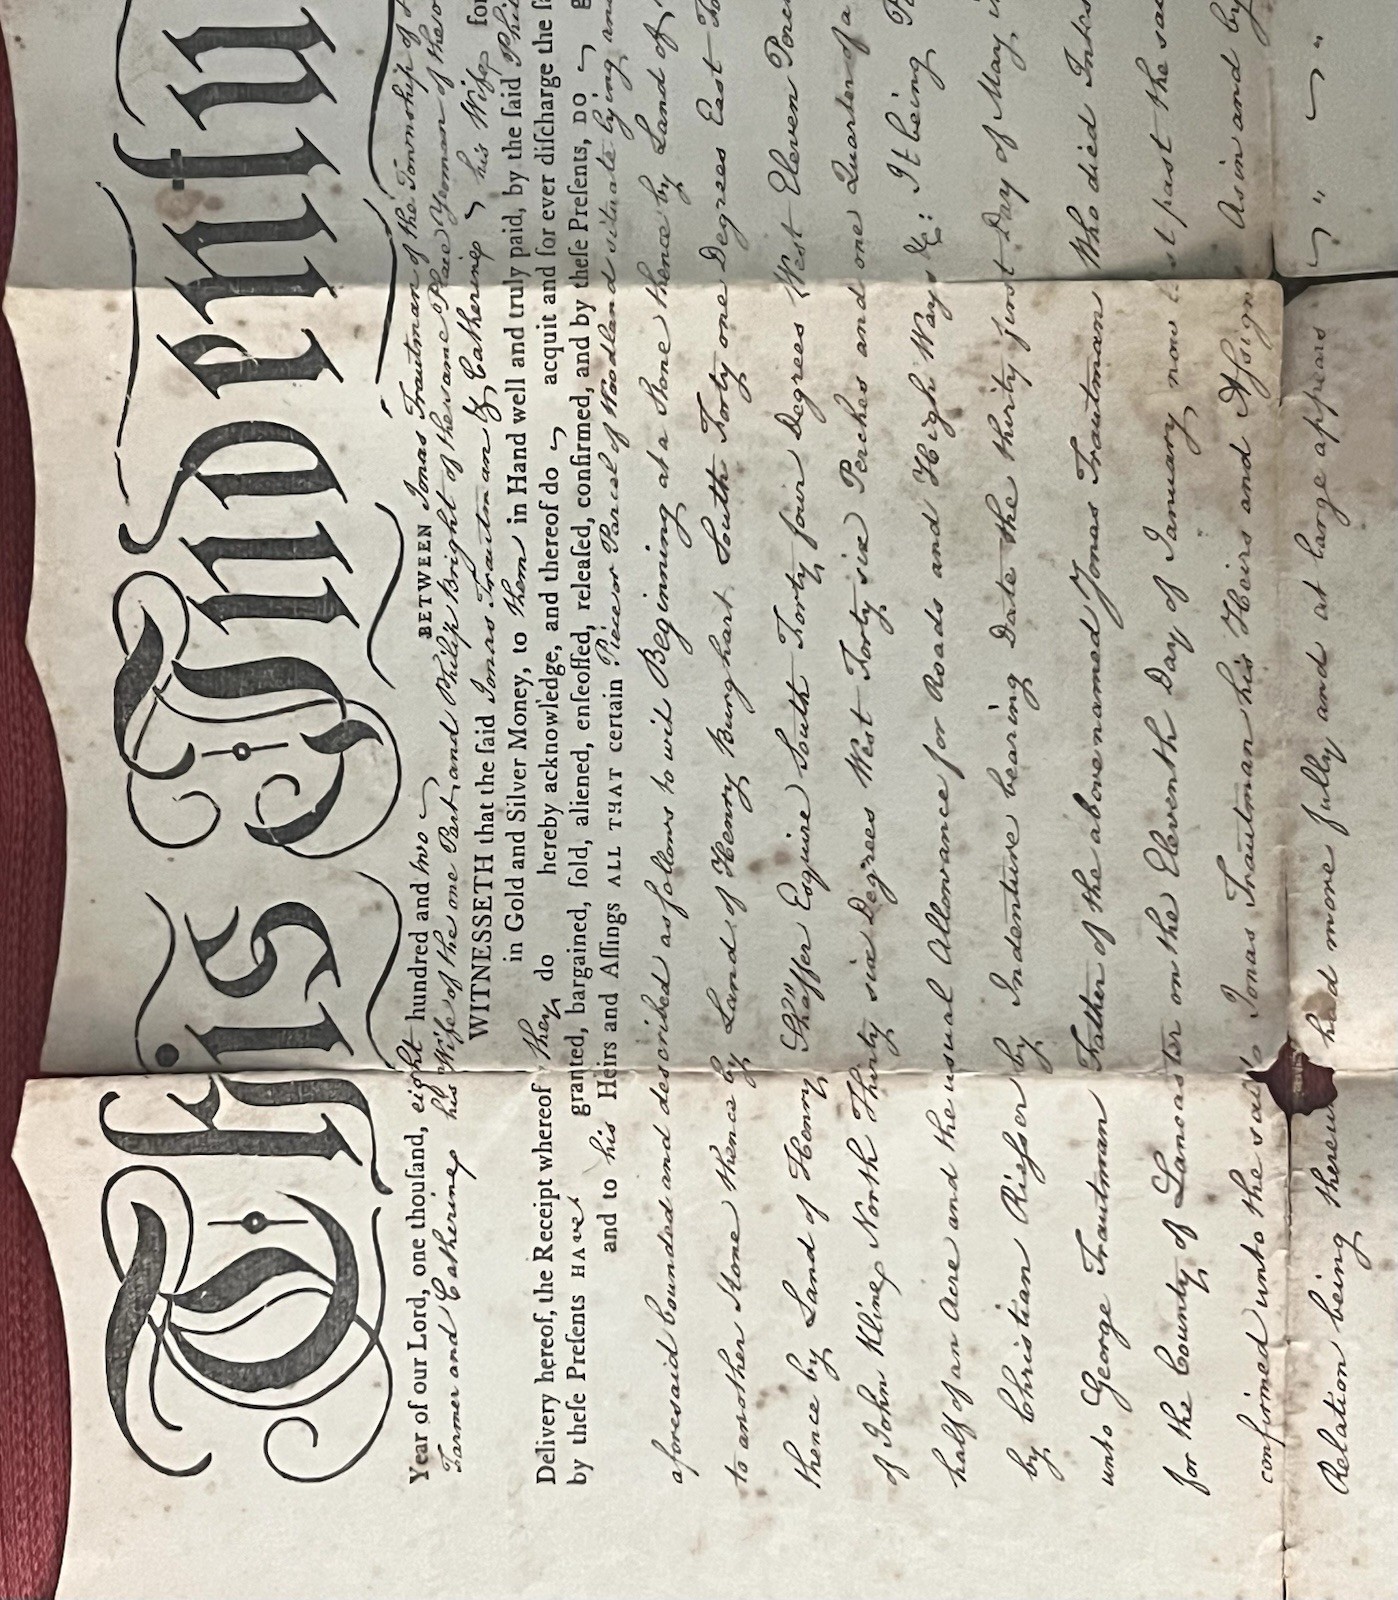 This Indentu
BETWEEN Jonas Trautman of the Township of
Year of our Lord, one thouſand, eight hundred and two
Farmer and Catherine his Wife of the one Part, and Philip Bright of the same Place Yeoman of the
WITNESSETH that the ſaid Jonas Trautman & Catherine his Wife for
in Gold and Silver Money, to them in Hand well and truly paid, by the ſaid Phil
Delivery hereof, the Receipt whereof they do hereby acknowledge, and thereof do acquit and for ever diſcharge the ſa
by theſe Preſents HAve granted, bargained, ſold, aliened, enfeoffed, releaſed, confirmed, and by theſe Preſents, DO g
and to his Heirs and Aſſings ALL THAT certain Piece or Parcel of Woodland situate lying and
aforesaid bounded and described as follows to wit Beginning at a Stone thence by Land of
to another Stone thence by Land of Henry Bunghart South Forty one Degrees East
thence by Land of Henry Shäffer Esquire South Forty four Degrees West Eleven Perc
of John Kline North Thirty six Degrees West Forty six Perches and one Quarter of a
half of an Acre and the usual Allowance for Roads and High Ways &c: It being
by Christian Rieſser by Indenture bearing Date the thirty first Day of May
unto George Trautman Father of the abovenamed Jonas Trautman Who died Intes
for the County of Lancaster on the Eleventh Day of January now last past the sa
confirmed unto the said Jonas Trautman his Heirs and Aſsigns As in and by
Relation being thereunto had more fully and at large appears " "